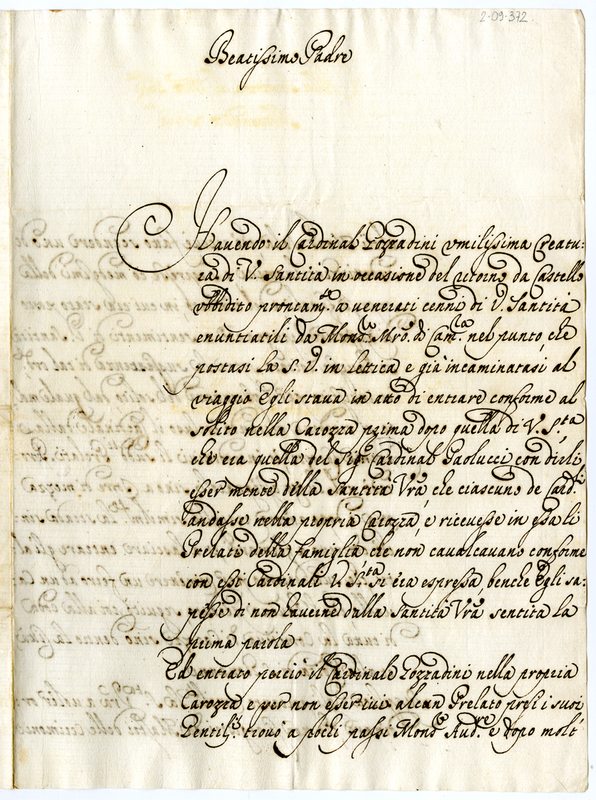 2-09-372.
Beatissimo Padre
Havendo il Cardinal Pozzadini umilissima Creatu:
ra di V. Santità in occasione del ritorno da Castello
ubbidito prontam.te a venerati cenni di V. Santità
enuntiatili da Mons.r Mro. di Cam.ra nel punto, che
postasi la S. V. in lettica e già incaminatasi al
viaggio Egli stava in atto di entrare conforme al
solito nella Carozza prima dopo quella di V. S.tà
che era quella del Sig.r Cardinal Paolucci con dirli
esser mente della Santità Vra, che ciascuno de Card.li
andasse nella propria Carozza, e ricevesse in essa li
Prelati della famiglia che non cavalcavano conforme
con essi Cardinali V. S.tà si era espressa benche Egli sa:
pesse di non haverne dalla Santità Vra sentita la
prima parola
Ed entrato perciò il Cardinale Pozzadini nella propria
Carozza e per non esser ivi alcun Prelato presi i suoi
Gentil.i trovò a pochi passi Mons.r Aud.re e dopo molt